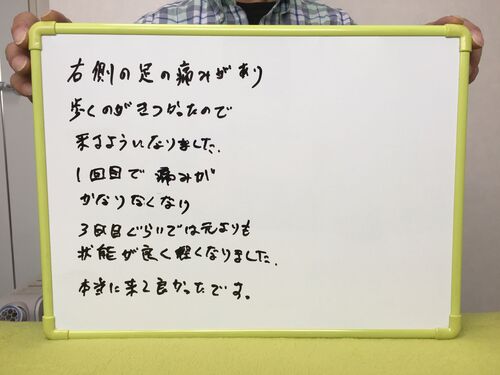 右側の足の痛みがあり
歩くのがきつかったので
来るようになりました.
1回目で痛みが
かなりなくなり
3回目ぐらいでは元よりも
状態が良く軽くなりました.
本当に来て良かったです。